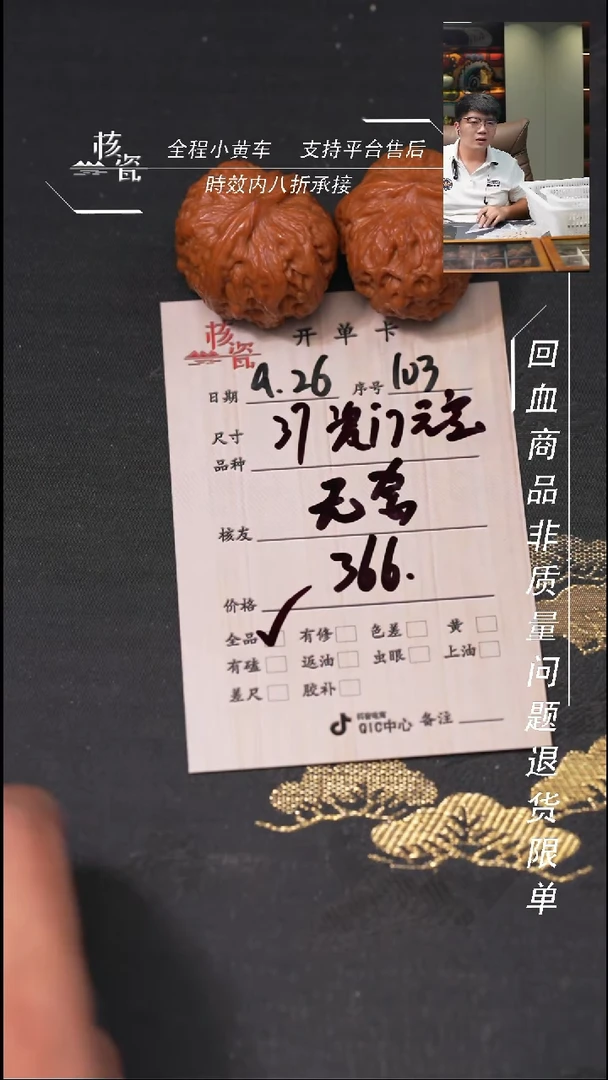 核瓷
全程小黄车 支持平台售后
時效内八折承接
核瓷
开单卡
日期 9.26 序号 103
尺寸 37瓷门元宝
品种
无套
核友
366.
价格
全品 有修 色差 黄
有磕 返油 虫眼 上油
差尺 胶补
抖音电商
QIC中心 备注
回血商品非质量问题退货限单